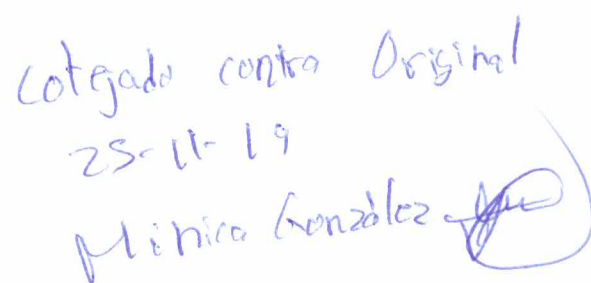 Cotejado contra Original
25-11-19
Mónica González